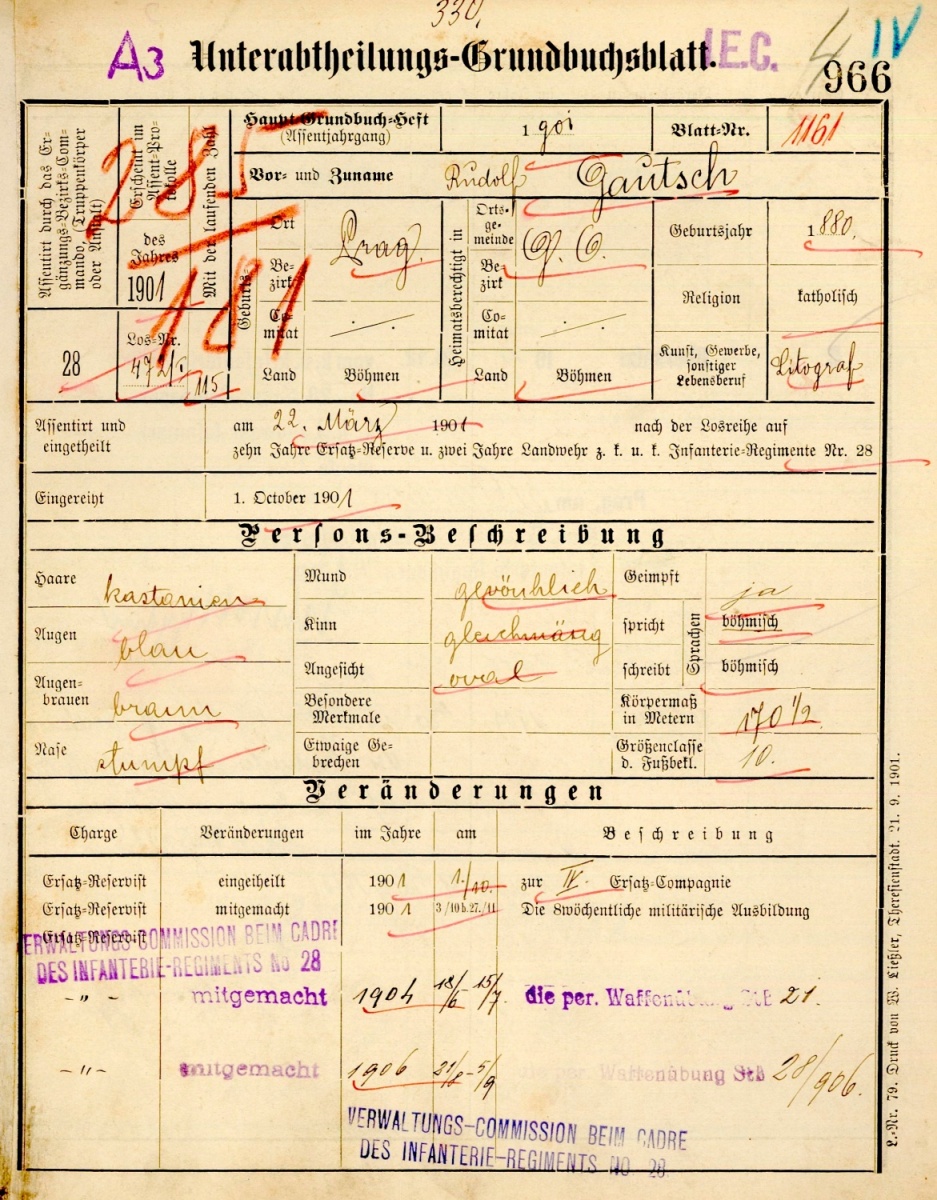 330.
A3 Unterabtheilungs-Grundbuchsblatt. I.E.C. IV
966
Assentirt durch das Er-
gänzungs-Bezirks-Com-
mando, (Truppenkörper
oder Anstalt)
28
Erscheint im
Assent-Pro-
tokolle
des
Jahres
1901
Mit der laufenden Zahl
285
181
Los-Nr.
115
Haupt-Grundbuch-Heft
(Assentjahrgang)
1901
Blatt-Nr.
1161
Vor- und Zuname Rudolf Gautsch
Geburts-
Ort
Be-
zirk
Prag.
Co-
mitat
Land Böhmen
Heimatsberechtigt in
Orts-
ge-
meinde
Be-
zirk
G. O.
Co-
mitat
Land Böhmen
Geburtsjahr 1880.
Religion katholisch
Kunst, Gewerbe,
sonstiger
Lebensberuf
Litograf
Assentirt und
eingetheilt
am 22. März 1901 nach der Losreihe auf
zehn Jahre Ersatz-Reserve u. zwei Jahre Landwehr z. k. u. k. Infanterie-Regimente Nr. 28
Eingereiht 1. October 1901
Persons-Beschreibung
Haare kastanien
Augen blau
Augen-
brauen
braun
Nase stumpf
Mund gewöhnlich
Kinn gleichmäßig
Angesicht oval
Besondere
Merkmale
Etwaige Ge-
brechen
Geimpft ja
Sprachen
spricht böhmisch
schreibt böhmisch
Körpermaß
in Metern
170 1/2
Größenclasse
d. Fußbekl.
10.
Veränderungen
Charge Veränderungen im Jahre am Beschreibung
Ersatz-Reservist eingetheilt 1901 1./10. zur IV. Ersatz-Compagnie
Ersatz-Reservist mitgemacht 1901 3/10 b. 27./11 Die 8wöchentliche militärische Ausbildung
Ersatz-Reservist
VERWALTUNGS-COMMISSION BEIM CADRE
DES INFANTERIE-REGIMENTS No 28
-"- mitgemacht 1904 18/6 - 15/7. die per. Waffenübung StB 21.
-"- mitgemacht 1906 - 5/9 die per. Waffenübung StB 28/906.
VERWALTUNGS-COMMISSION BEIM CADRE
DES INFANTERIE-REGIMENTS No. 28
L.-Nr. 79. Druck von W. Ließler, Theresienstadt. 21. 9. 1901.